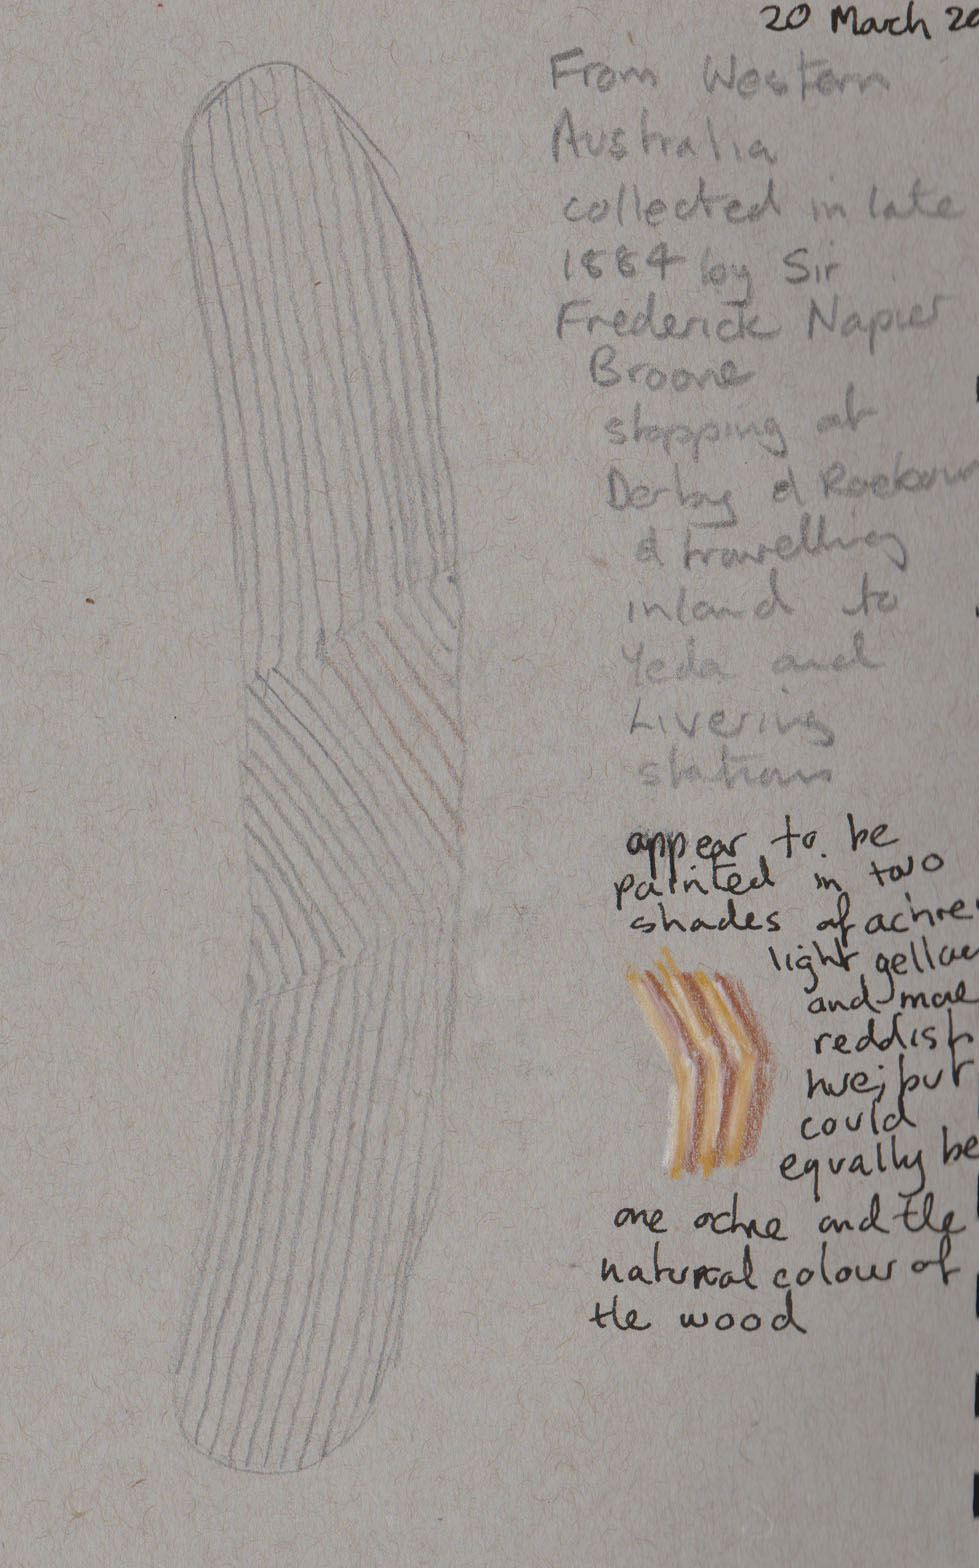 20 March 20
From Western
Australia
collected in late
1884 by Sir
Frederick Napier
Broome
stopping at
Derby &
& travelling
inland to
Yeda and
Livering
station
appear to be
painted in two
shades of ochre
light yellow
and more
reddish
hue; but
could
equally be
one ochre and the
natural colour of
the wood